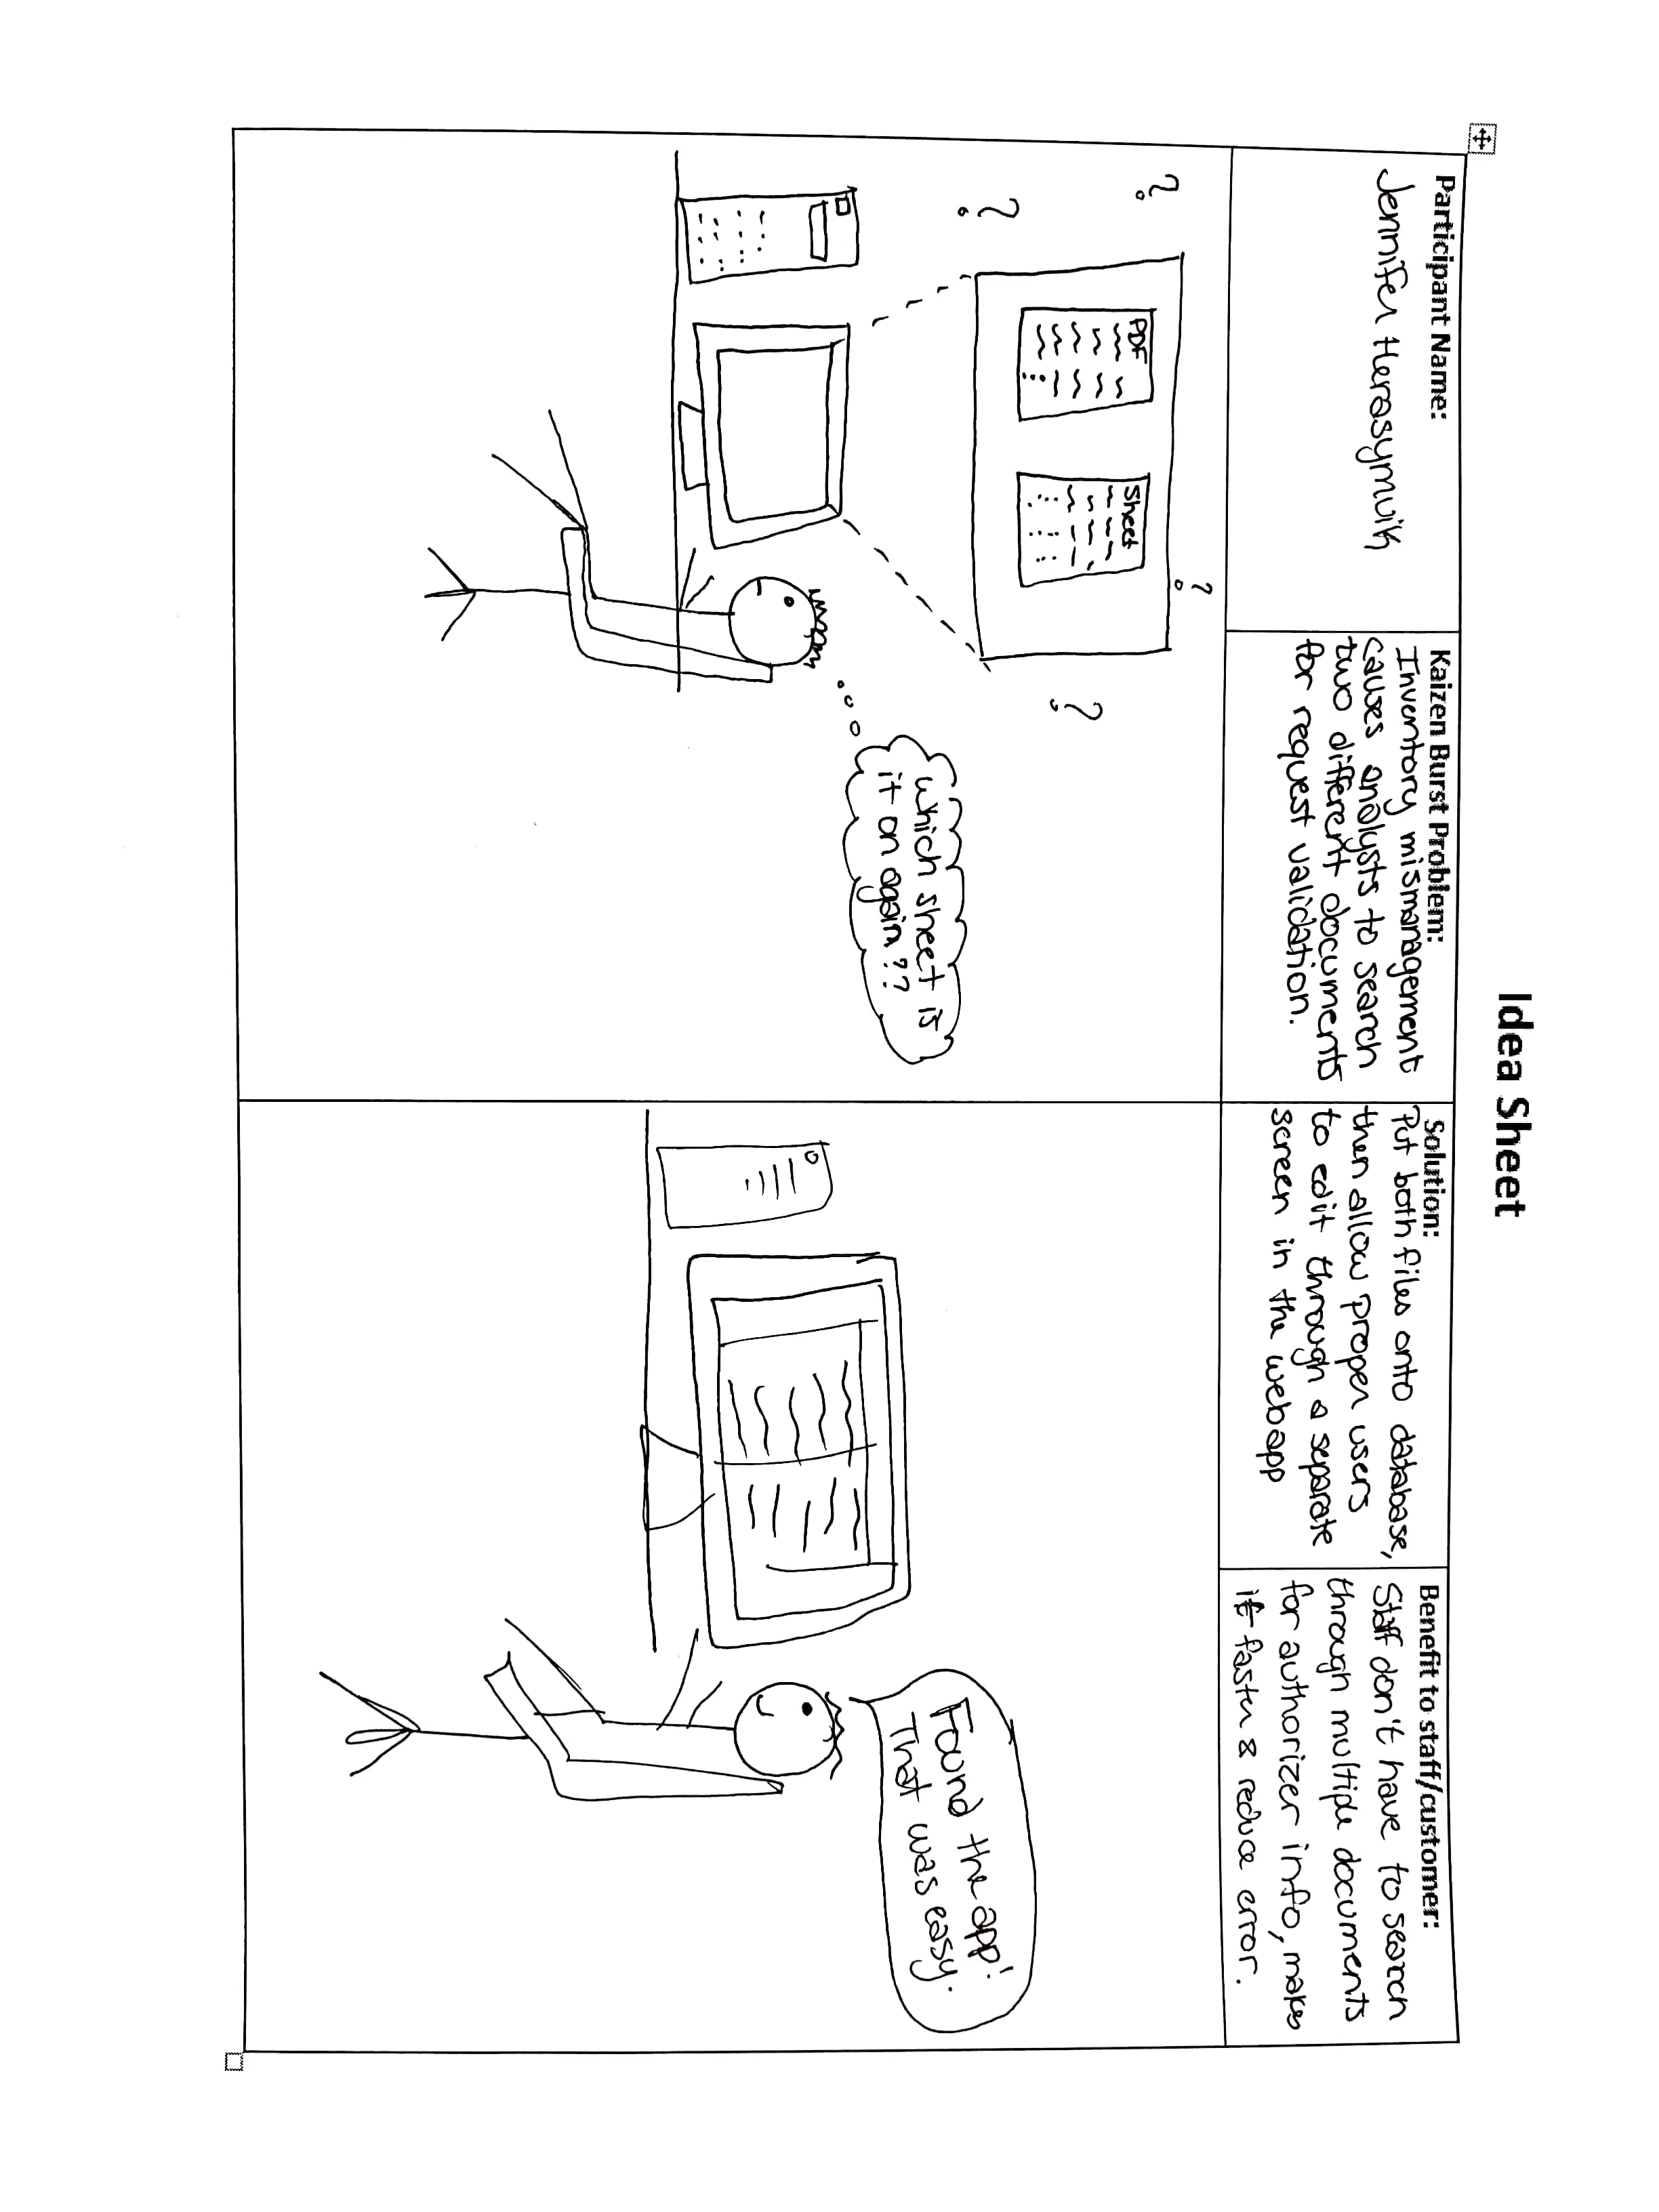 Idea Sheet
Participant Name:
Jennifer Herasymuik
Kaizen Burst Problem:
Inventory mismanagement
causes analysts to search
two different documents
for request validation.
Solution:
Put both files onto database,
then allow proper users
to edit through a separate
screen in the webapp
Benefit to staff/customer:
Staff don't have to search
through multiple documents
for authorizer info, makes
it faster & reduce error.
?
?
?
?
PDF
Sheet
which sheet is
it on again??
Found the app!
That was easy.